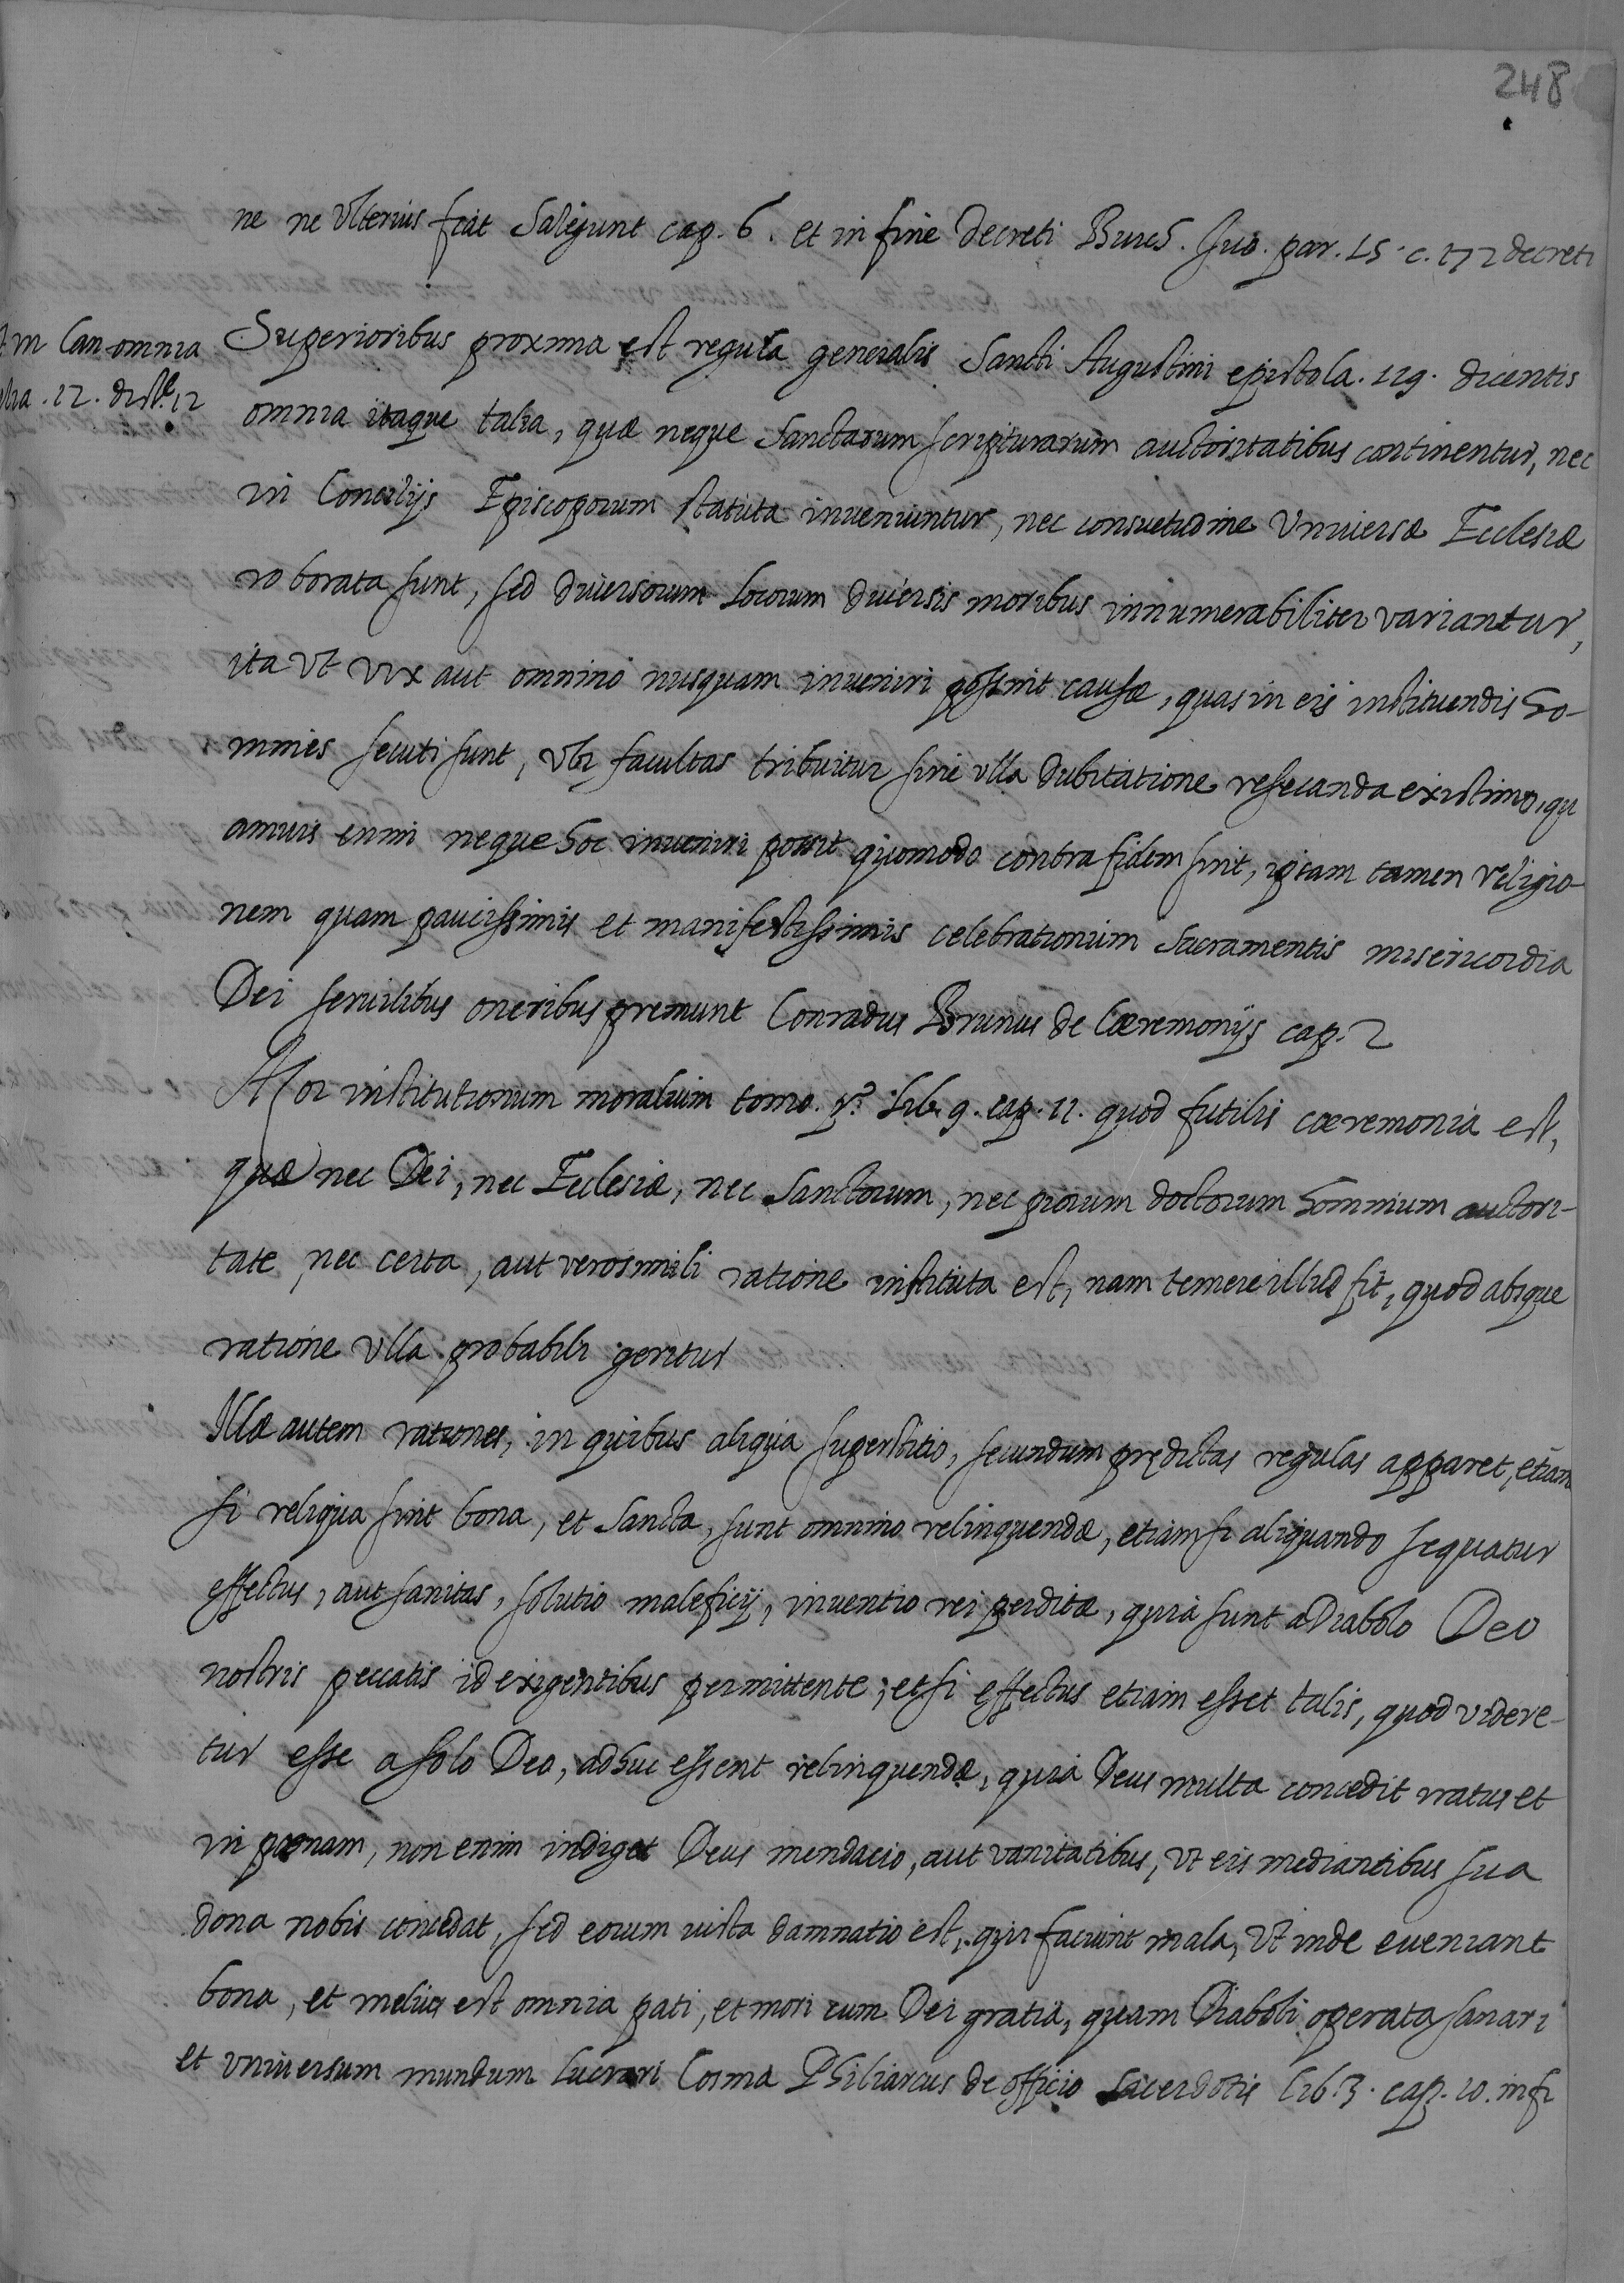 248
ne ne Vlterius fiat Salegunt cap. 6. et in fine decreti Burcs. Iuo. par. 15. c. 172 decreti
in Can omnia
12. dist. 12
Superioribus proxima est regula generalis Sancti Augustini epistola. 119. dicentis
omnia itaque talia, quæ neque Sanctarum scripturarum auctoritatibus continentur, nec
in Concilijs Episcoporum statuta inueniuntur, nec consuetudine Vniuersæ Ecclesiæ
roborata sunt, sed diuersorum locorum diuersis moribus innumerabiliter variantur,
ita Vt vix aut omnino nusquam inueniri possint causæ, quas in eis instituendis ho-
mines secuti sunt, Vbi facultas tribuitur sine vlla dubitatione resecanda existimo, qu
amuis enim neque hoc inueniri possit quomodo contra fidem sint, ipsam tamen religio-
nem quam paucissimis et manifestissimis celebrationum Sacramentis misericordia
Dei seruilibus oneribus premunt Conradus Brunus de Cæremonijs cap. 2
Azor institutionum moralium tomo. p.º Lib. 9. cap. 11. quod futilis cæremonia est,
quæ nec Dei, nec Ecclesiæ, nec Sanctorum, nec piorum doctorum hominum auctori-
tate, nec certa, aut verosimili ratione instituta est, nam temere illud fit, quod absque
ratione vlla probabili geritur
Illæ autem rationes, in quibus aliqua superstitio, secundum prędictas regulas apparet, etiam
si reliqua sint bona, et Sancta, sunt omnino relinquendæ, etiamsi aliquando sequatur
effectus, aut sanitas, solutio maleficij, inuentio rei perditæ, quia sunt a Diabolo Deo
nostris peccatis id exigentibus permittente; etsi effectus etiam esset talis, quod videre-
tur esse a solo Deo, adhuc essent relinquendæ, quia Deus multa concedit iratus et
in pœnam, non enim indiget Deus mendacio, aut vanitatibus, Vt eis mediantibus sua
dona nobis concedat, sed eorum iusta damnatio est, qui faciunt mala, Vt inde eueniant
bona, et melius est omnia pati, et mori cum Dei gratia, quam Diaboli operata sanari
et vniuersum mundum lucrari Cosma Philiarcus de officio Sacerdotis lib. 3. cap. 10. in fi